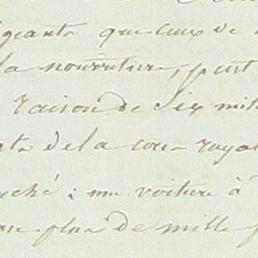 geants que ceux de
la nourriture, peut
raison de six mill
ats de la cour royal
rché: une voiture à
que plus de mille f